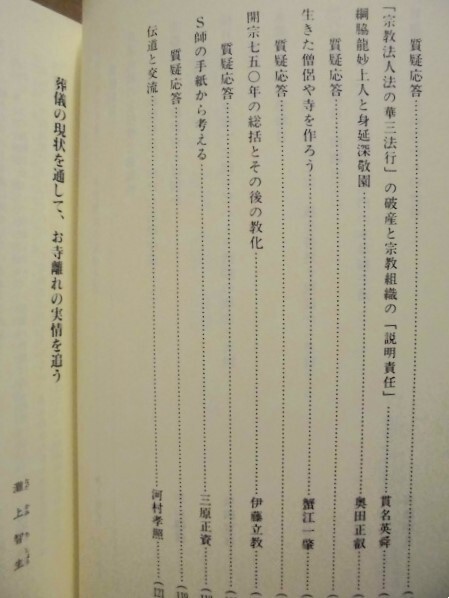 質疑応答
「宗教法人法の華三法行」の破産と宗教組織の「説明責任」 貫名英舜
綱脇龍妙上人と身延深敬園 奥田正叡
質疑応答
生きた僧侶や寺を作ろう 蟹江一肇
質疑応答
開宗七五〇年の総括とその後の教化 伊藤立教
質疑応答
S師の手紙から考える 三原正資
質疑応答
伝道と交流 河村孝照
葬儀の現状を通して、お寺離れの実情を追う
上智